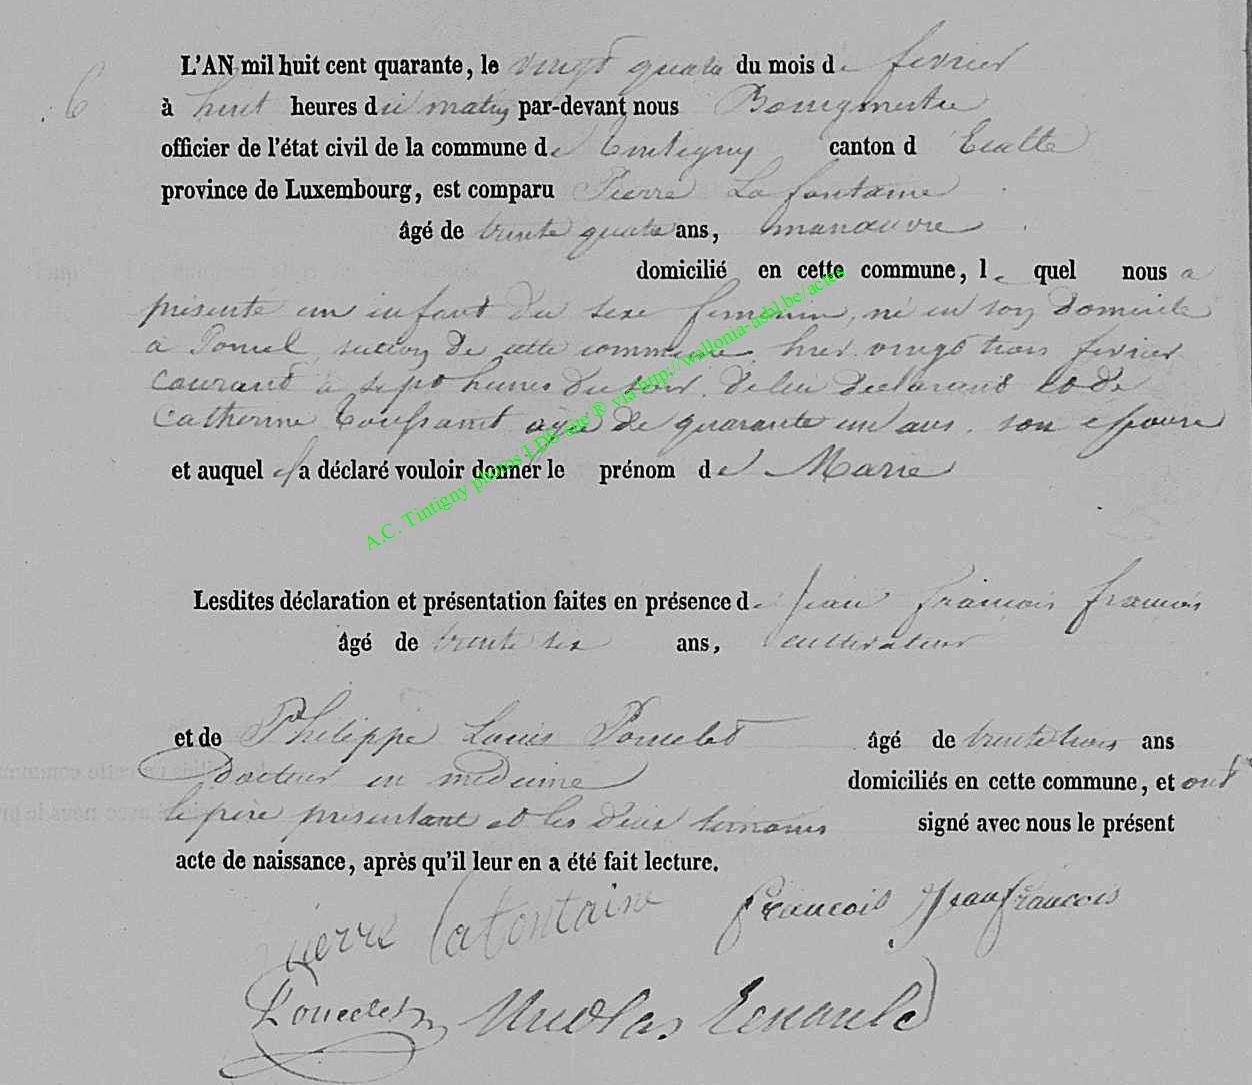 L'AN mil huit cent quarante, le vingt quatre du mois de fevrier
6
à huit heures du matin par-devant nous Bourgmestre
officier de l'état civil de la commune de Tintigny canton d' Etalle
province de Luxembourg, est comparu Pierre Lafontaine
âgé de trente quatre ans, manœuvre
domicilié en cette commune, le quel nous a
présenté un enfant du sexe feminin, né en son domicile
a section de cette commune hier vingt trois fevrier
courant à sept heures du soir, de lui declarant et de
Catherine Toussaint agée de quarante un ans, son epouse
et auquel il a déclaré vouloir donner le prénom de Marie
A.C. Tintigny photos LDB-site ® via http://wallonia-asbl.be/actes
Lesdites déclaration et présentation faites en présence de Jean François François
âgé de trente six ans, cultivateur
et de Philippe Louis Poncelet âgé de trente trois ans
Docteur en medecine domiciliés en cette commune, et ont
le père présentant et les deux temoins signé avec nous le présent
acte de naissance, après qu'il leur en a été fait lecture.
pierre lafontaine francois Jean francois
Poncelet Nicolas